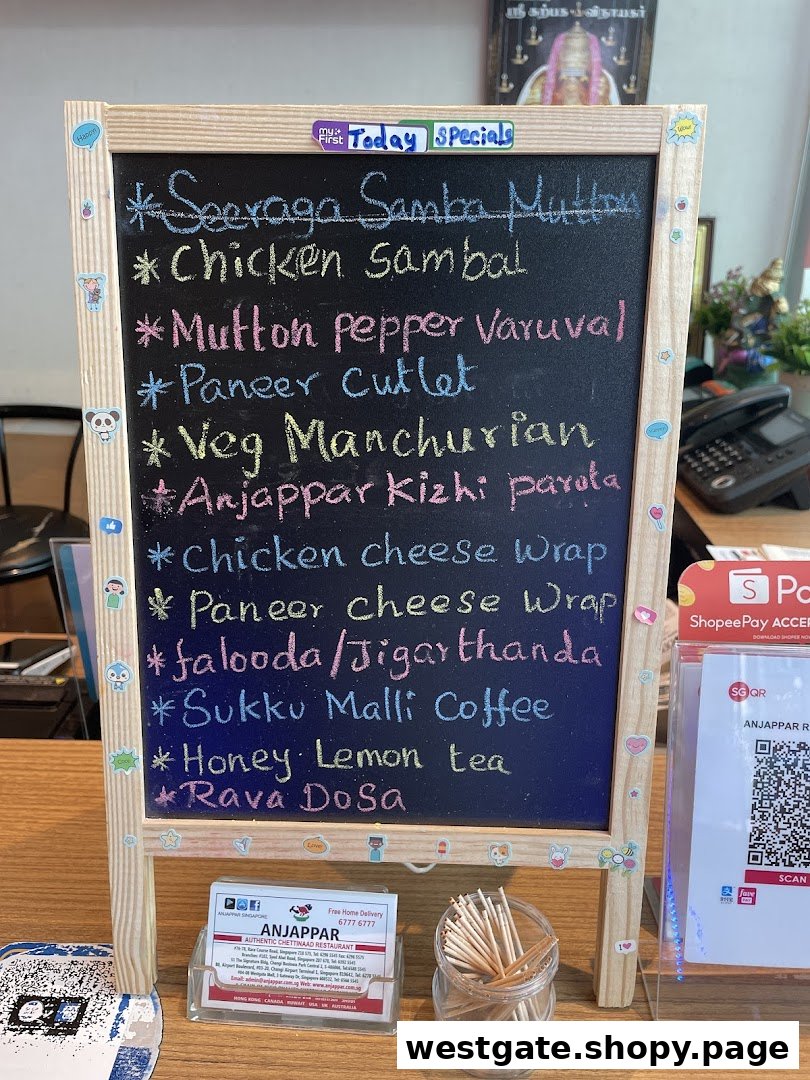 ஸ்ரீ கற்பக விநாயகர்
my First Today Specials
Happy
Wow!
* Seeraga Samba Mutton
* Chicken Sambal
* Mutton pepper Varuval
* Paneer Cutlet
* Veg Manchurian
* Anjappar kizhi parota
* Chicken cheese Wrap
* Paneer cheese Wrap
* falooda/Jigarthanda
* Sukku Malli Coffee
* Honey Lemon tea
* Rava Dosa
Love
S Pa
ShopeePay ACCEP
SGQR
ANJAPPAR R
SCAN
fave PAY
ANJAPPAR SINGAPORE
Free Home Delivery
6777 6777
ANJAPPAR
AUTHENTIC CHETTINAAD RESTAURANT
HONG KONG CANADA KUWAIT USA UK AUSTRALIA
westgate.shopy.page